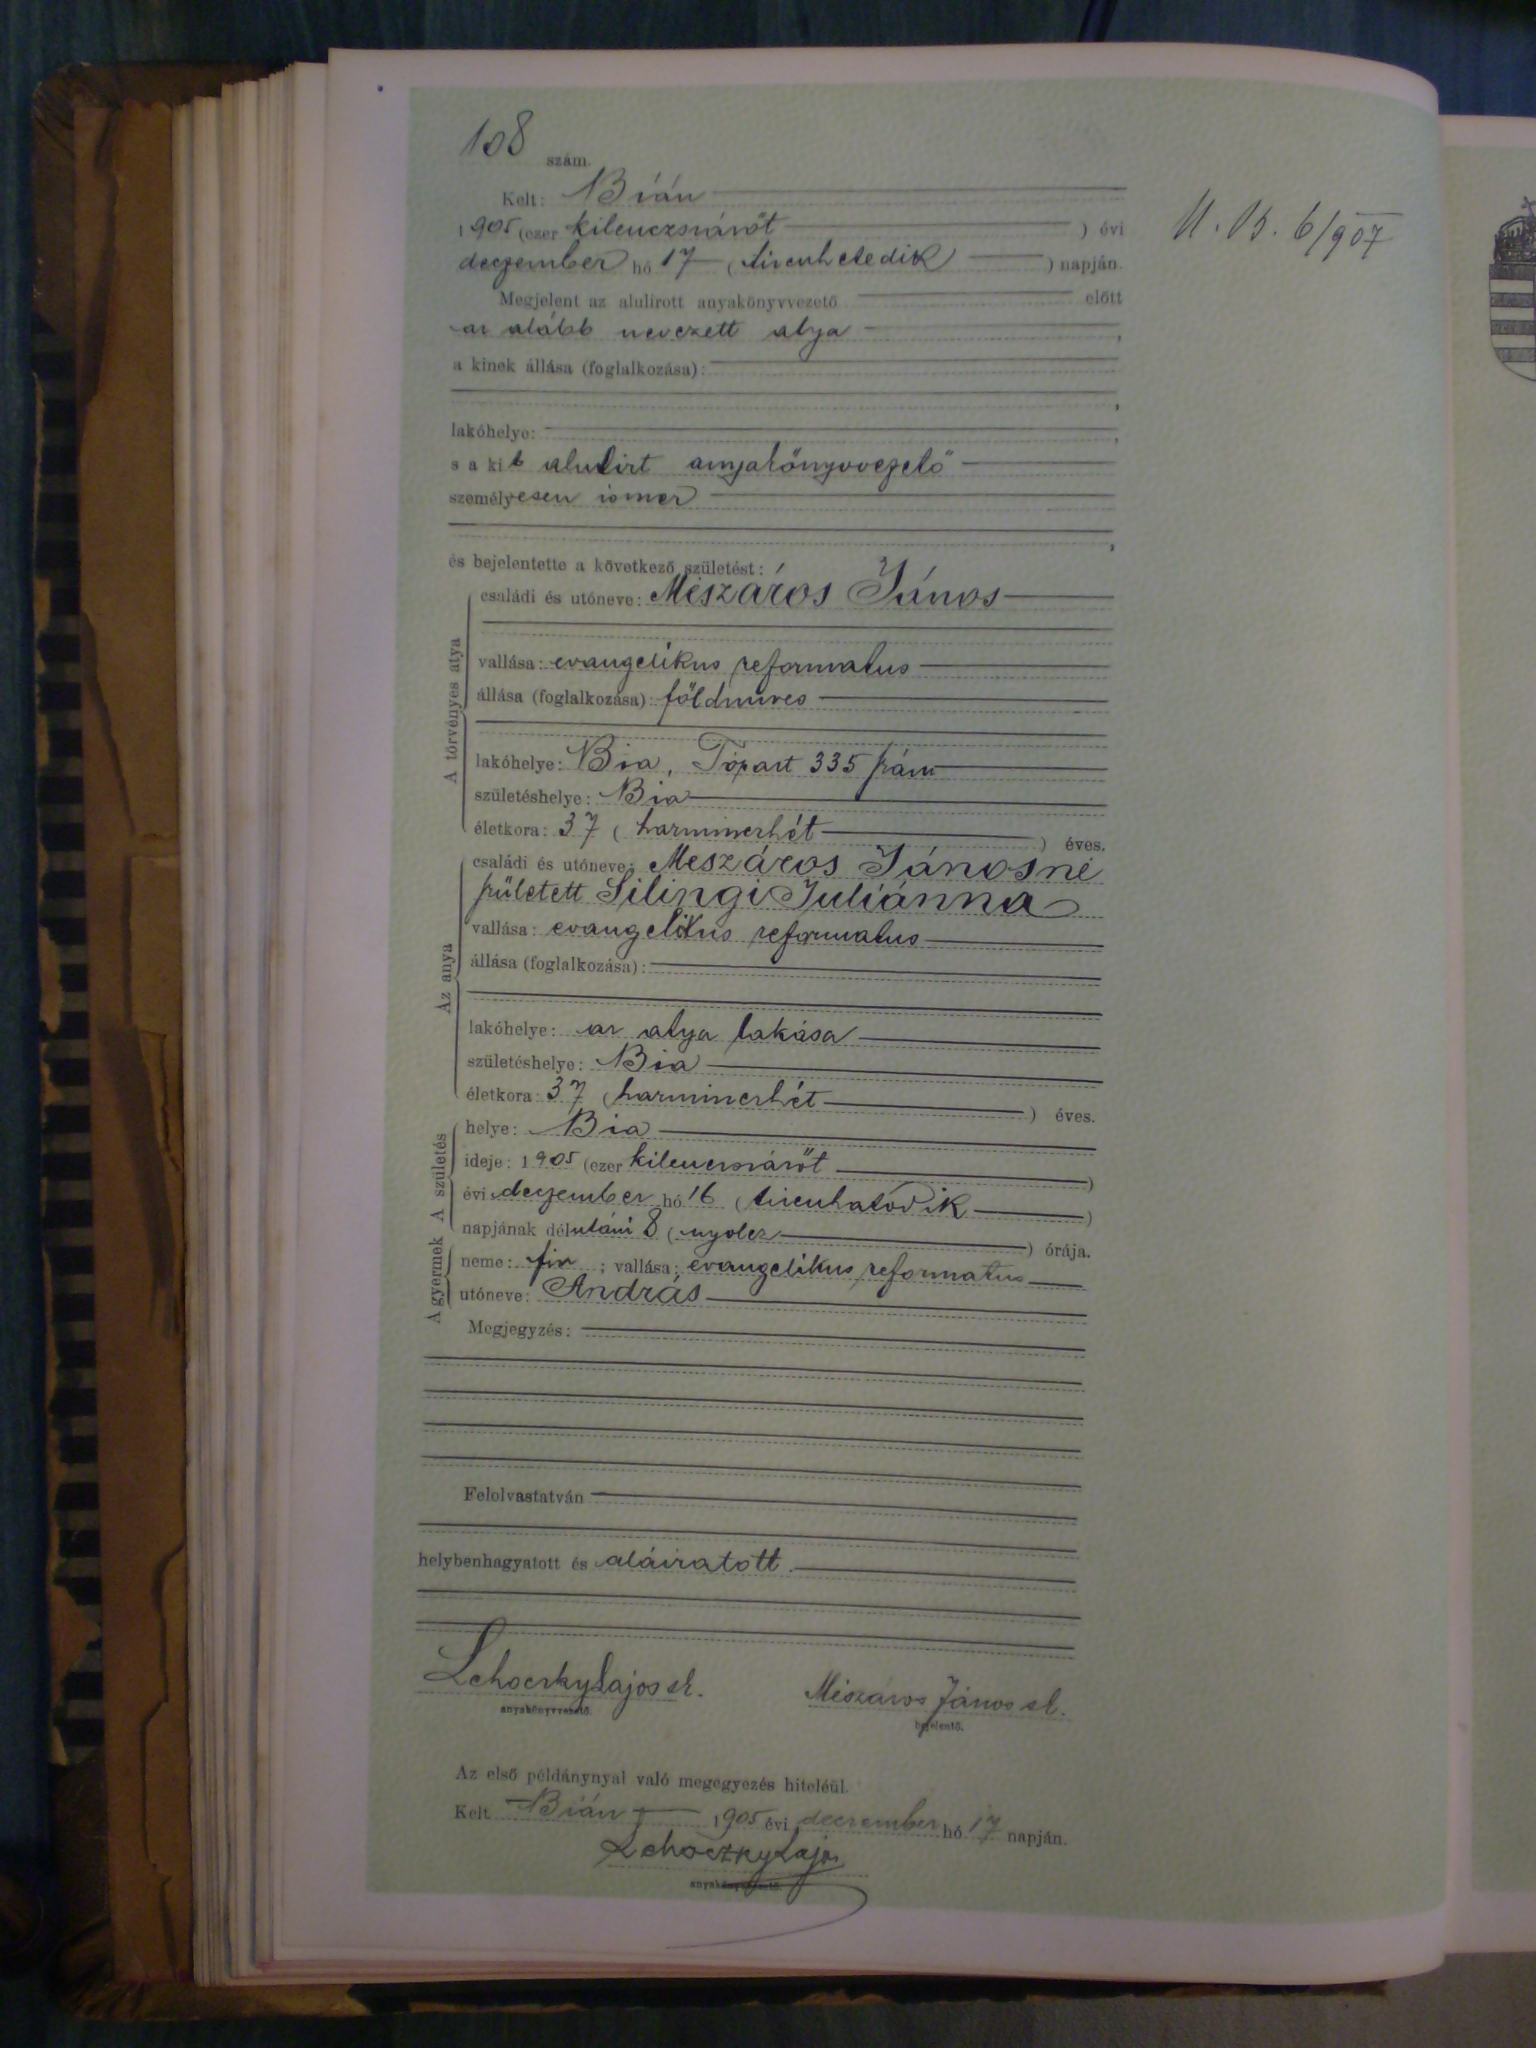 108 szám.
Kelt: Bián
1905 (ezer kilenczszázöt ) évi
deczember hó 17 ( tizenhetedik ) napján.
Megjelent az alulirott anyakönyvvezető előtt
az alább nevezett atya ,
a kinek állása (foglalkozása):
,
lakóhelye: ,
s a kit alulirt anyakönyvvezető
személyesen ismer
,
és bejelentette a következő születést:
A törvényes atya
családi és utóneve: Mészáros János
vallása: evangelikus reformatus
állása (foglalkozása): földmüves
lakóhelye: Bia, Tópart 335 szám
születéshelye: Bia
életkora: 37 ( harminczhét ) éves.
Az anya
családi és utóneve: Mészáros Jánosné
született Silingi Juliánna
vallása: evangelikus reformatus
állása (foglalkozása):
lakóhelye: az atya lakása
születéshelye: Bia
életkora: 37 ( harminczhét ) éves.
A születés
helye: Bia
ideje: 1905 (ezer kilenczszázöt )
évi deczember hó 16 ( tizenhatodik )
napjának délutáni 8 ( nyolcz ) órája.
A gyermek
neme: fiu ; vallása: evangelikus reformatus
utóneve: András
Megjegyzés:
Felolvastatván
helybenhagyatott és aláiratott.
Lehoczky Lajos sk.
anyakönyvvezető.
Mészáros János sk.
bejelentő.
Az első példánynyal való megegyezés hiteléül.
Kelt Bián 1905 évi deczember hó 17 napján.
Lehoczky Lajos
anyakönyvvezető.
6/907